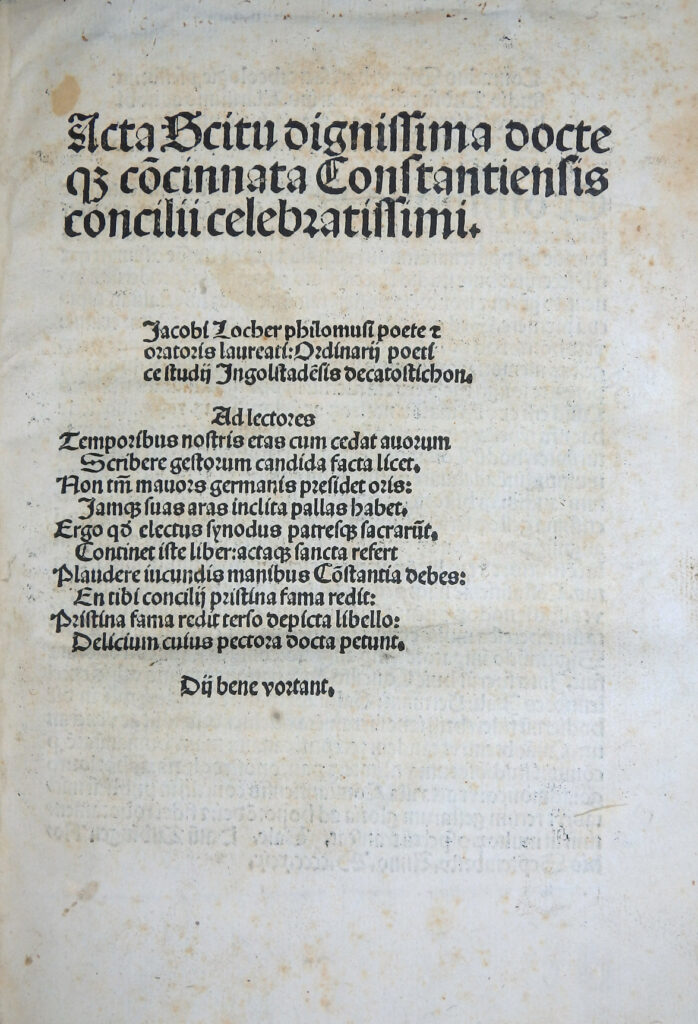 Acta Scitu dignissima docte
qꝫ cōcinnata Constantiensis
concilii celebratissimi.
Jacobi Locher philomusi poete ⁊
oratoris laureati: Ordinarij poeti
ce studij Ingolstadēsis decatostichon.
Ad lectores
Temporibus nostris etas cum cedat auorum
Scribere gestorum candida facta licet.
Non tm̄ mauors germanis presidet oris:
Jamqꝫ suas aras inclita pallas habet.
Ergo qđ electus synodus patresqꝫ sacrarūt.
Continet iste liber: actaqꝫ sancta refert
Plaudere iucundis manibus Cōstantia debes:
En tibi concilij pristina fama redit:
Pristina fama redit terso depicta libello:
Delicium cuius pectora docta petunt.
Dij bene vortant.